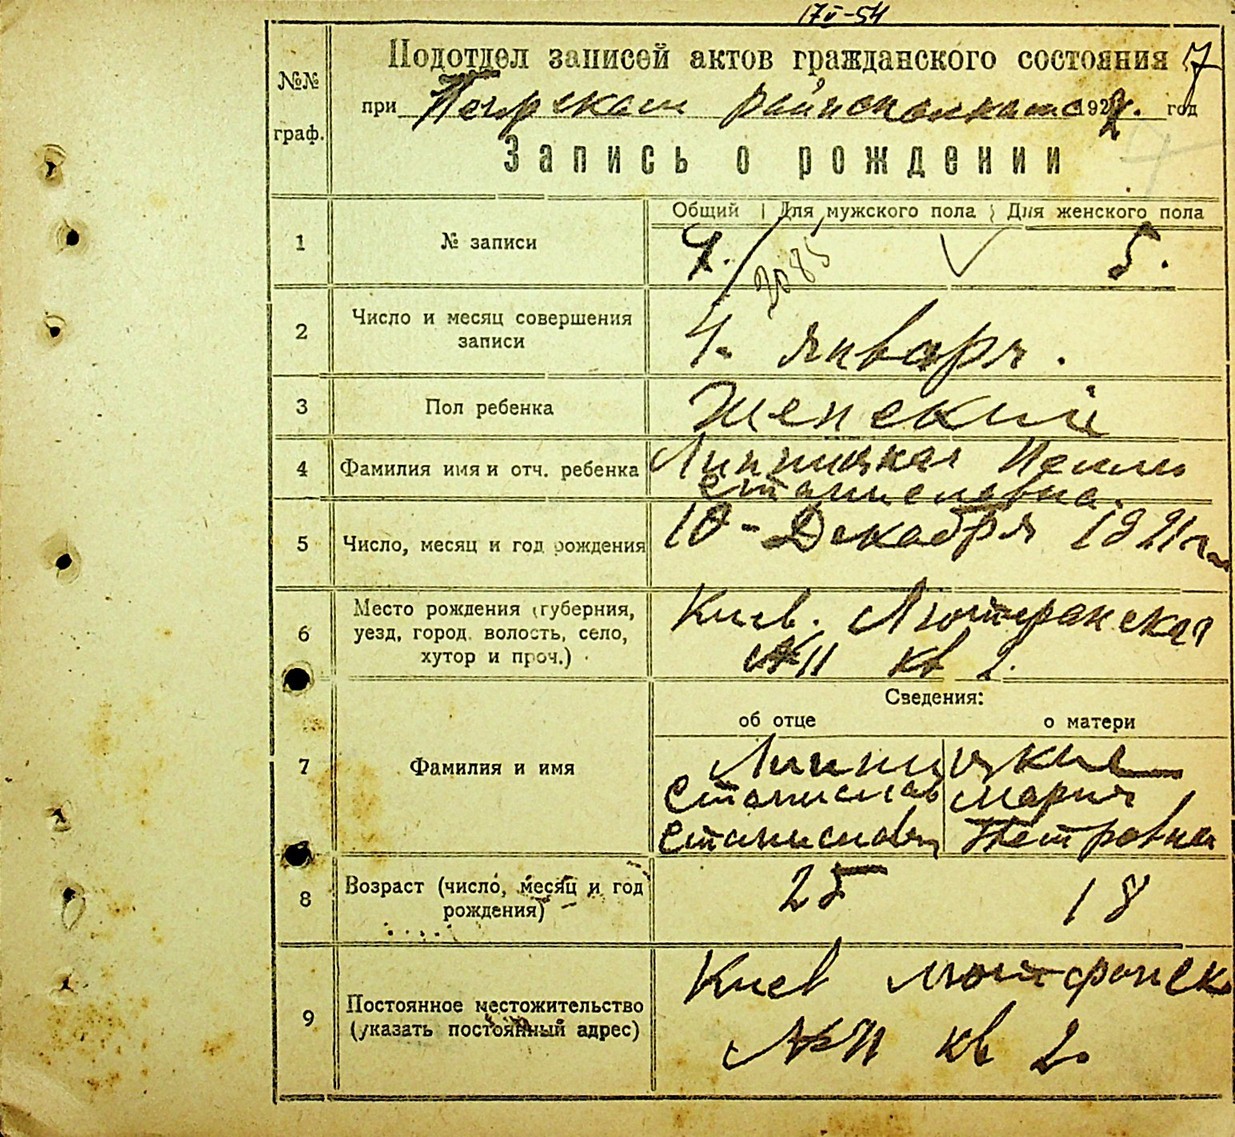 17 V-54
Подотдел записей актов гражданского состояния 7
№№ граф.
при райисполкоме 1922. год
Запись о рождении
Общий Для мужского пола Для женского пола
1 № записи 7. 2085 5.
2 Число и месяц совершения записи 4. января.
3 Пол ребенка Женский
4 Фамилия имя и отч. ребенка Липницкая
Станиславна.
5 Число, месяц и год рождения 10-Декабря 1921 г.
6 Место рождения (губерния, Киев. Лютеранская
уезд, город, волость, село, №11 кв 2.
хутор и проч.)
Сведения:
об отце о матери
7 Фамилия и имя Липницкие
Станислав Мария
Станиславович Петровна
8 Возраст (число, месяц и год рождения) 25 18
9 Постоянное местожительство Киев Лютеранск
(указать постоянный адрес) №11 кв 2.